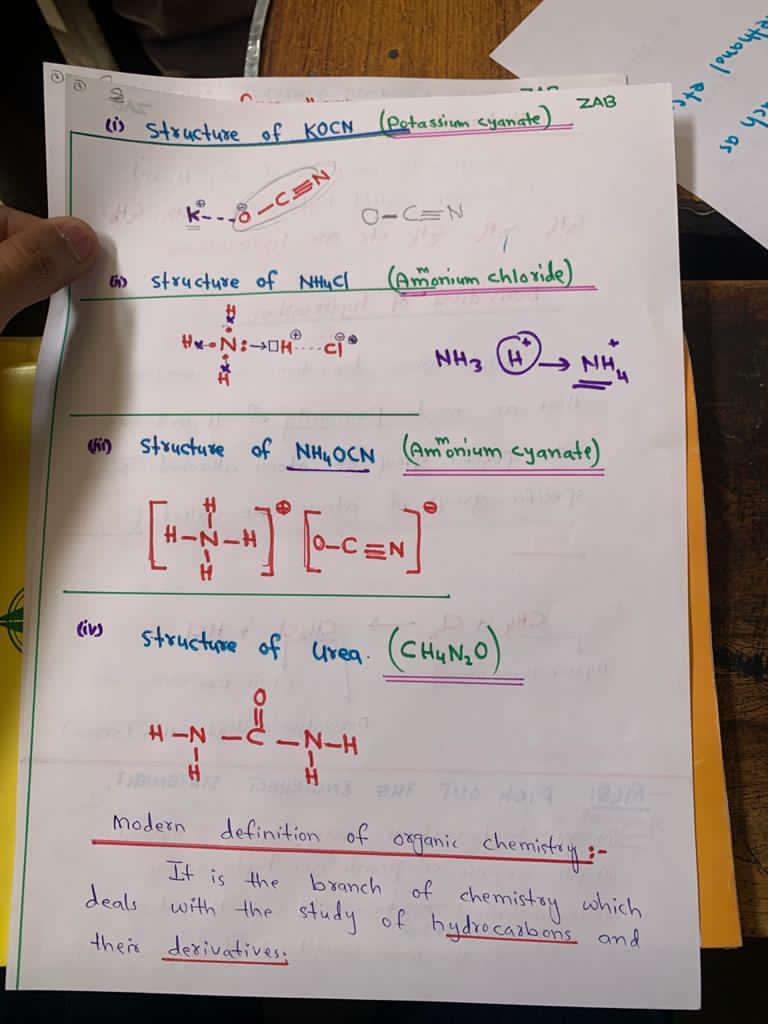 ZAB
(i) Structure of KOCN (Potassium cyanate)
K⊕---O⊖—C≡N O—C≡N
(ii) Structure of NH4Cl (Ammonium chloride)
H
H×•N:→□H⊕....Cl⊖ NH3 H+ → NH4+
H
(iii) Structure of NH4OCN (Ammonium cyanate)
H
[H—N—H]⊕ [O—C≡N]⊖
H
(iv) Structure of Urea. (CH4N2O)
O
H—N—C—N—H
H H
Modern definition of organic chemistry:-
It is the branch of chemistry which
deals with the study of hydrocarbons and
their derivatives.
ch as
ethanol etc.